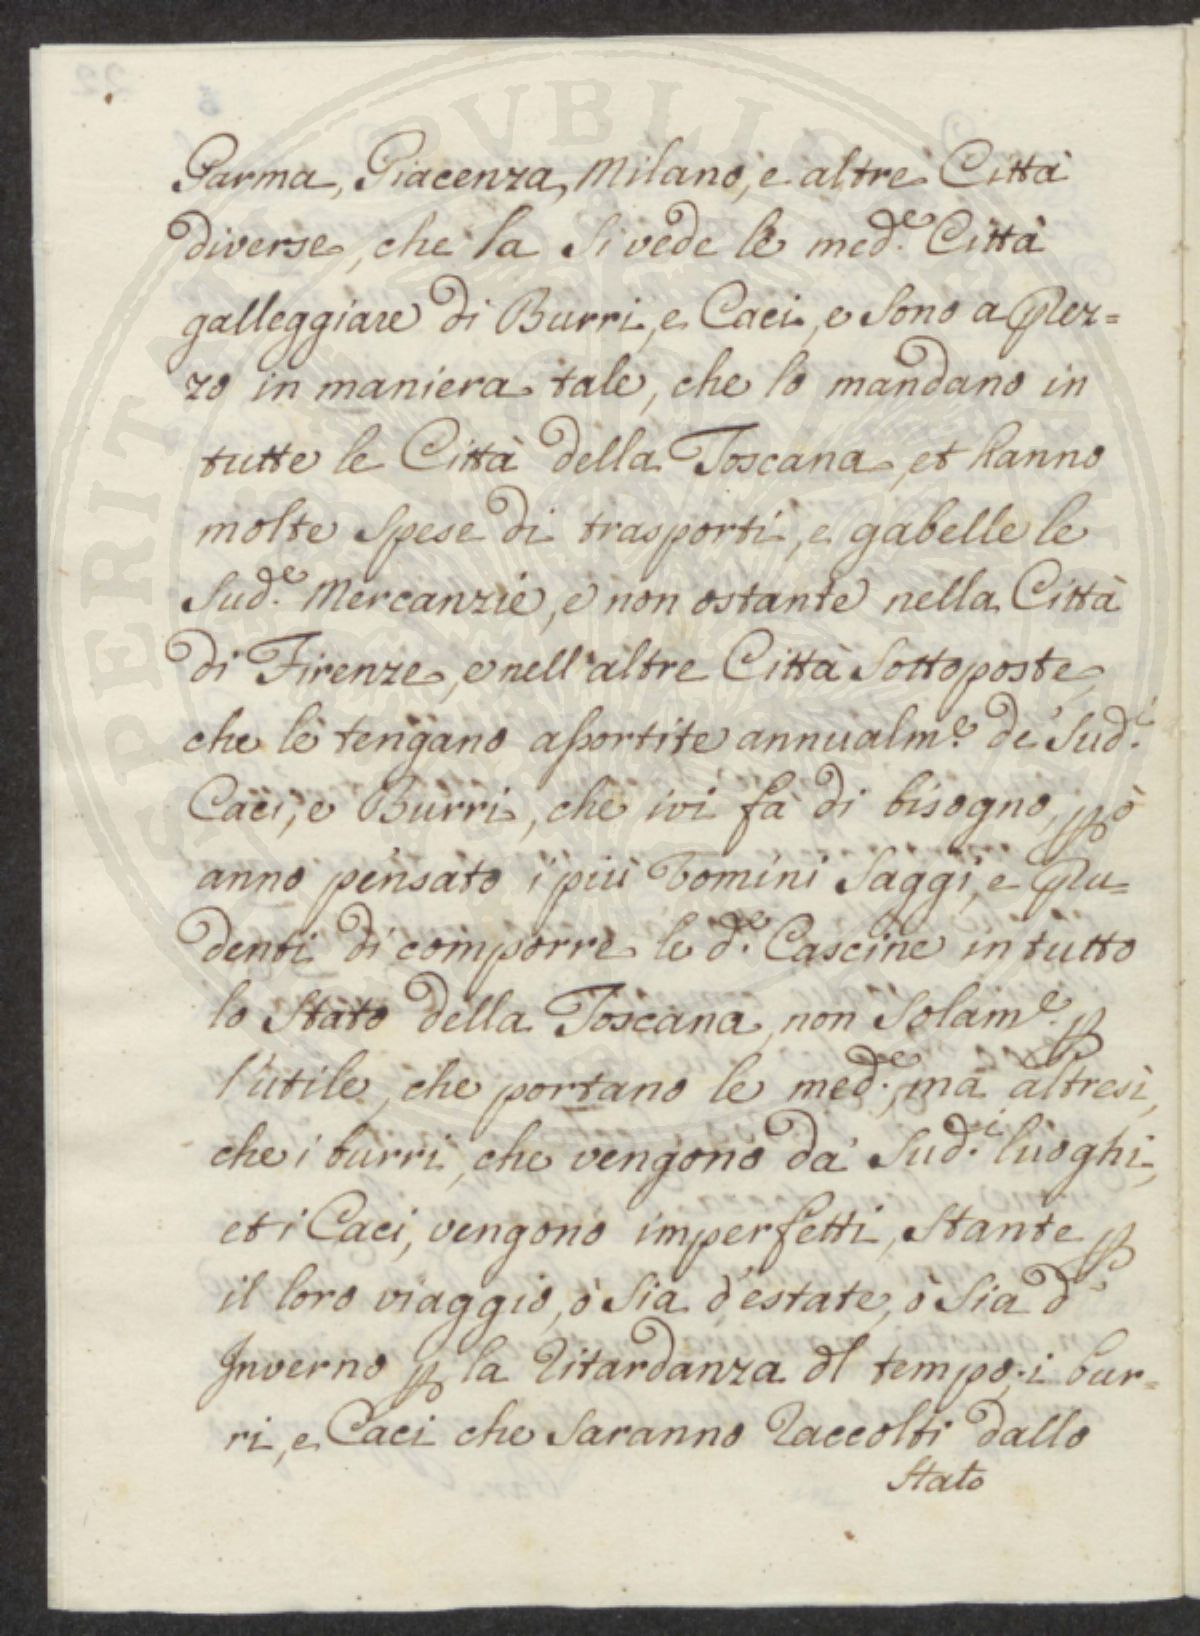 Parma, Piacenza, Milano, e altre Città
diverse, che la si vede le med.e Città
galleggiare di Burri, e Caci, e sono a Prez=
zo in maniera tale, che lo mandano in
tutte le Città della Toscana, et hanno
molte spese di trasporti, e gabelle le
sud.e Mercanzie, e non ostante nella Città
di Firenze, e nell'altre Città sottoposte,
che le tengano assortite annualm.e de' sud.i
Caci, e Burri, che ivi fà di bisogno, però
anno pensato i più Uomini Saggi, e Pru=
denti di comporre le d.e Cascine in tutto
lo Stato della Toscana, non solam.e p
l'utile, che portano le med.e, ma altresì,
che i burri, che vengono da' sud.i luoghi,
et i Caci, vengono imperfetti, stante p
il loro viaggio, ò sia d'estate, ò sia d'
Inverno p la Ritardanza dl tempo; i bur=
ri, e Caci che saranno Raccolti dallo
Stato
22
SPERITAN
PVBLIC